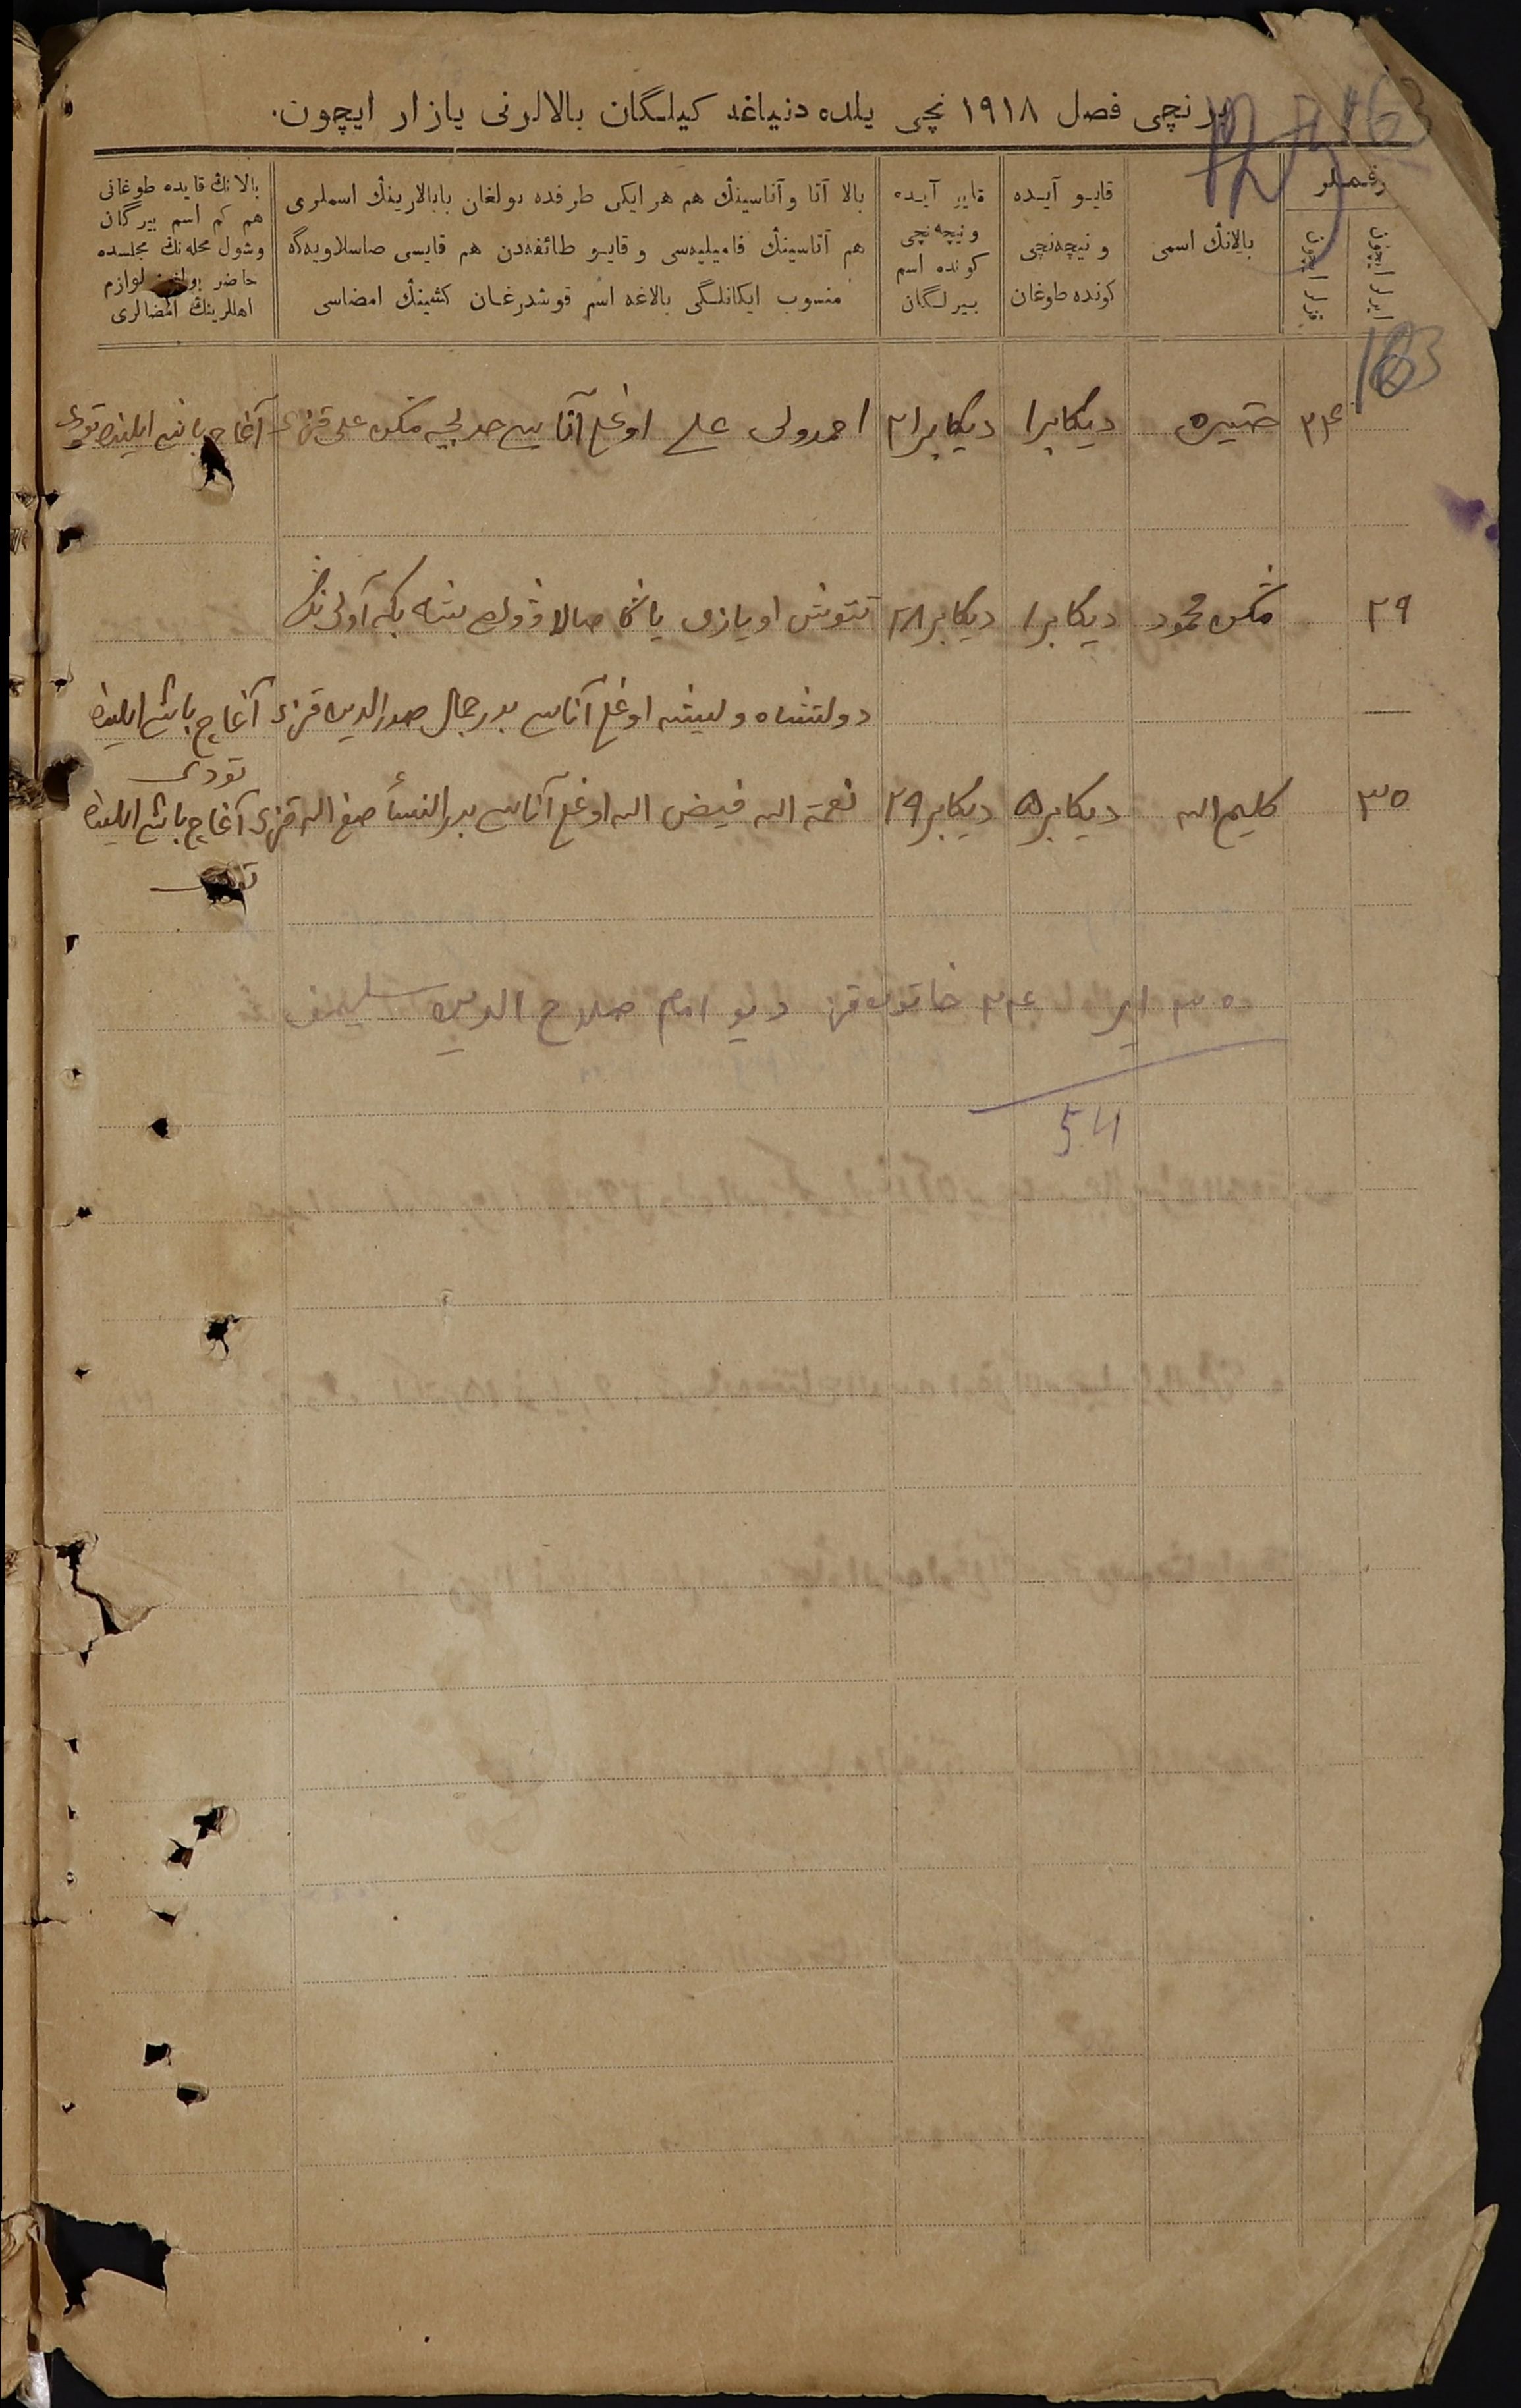 برنچی فصل ۱۹۱۸ نچی یلده دنیاغه کیلگان بالالرنی یازار ایچون.
163
رقملر
ایرلر ایچون
قزلر ایچون
بالانڭ اسمی
قایو آیده
و نیچه‌نچی
کونده طوغان
قایو آیده
و نیچه‌نچی
کونده اسم
بیرلگان
بالا آتا و آناسینڭ هم هر ایکی طرفده بولغان بابالارینڭ اسملری
هم آتاسینڭ فامیلیه‌سی و قایو طائفه‌دن هم قایسی صاسلاویه‌گه
منسوب ایکانلگی بالاغه اسم قوشدرغان کشینڭ امضاسی
بالانڭ قایده طوغانی
هم کم اسم بیرگان
وشول محله‌نڭ مجلسده
حاضر بولغان لوازم
اهللرینڭ امضالری
163
۲۴ دیکابر ۱ دیکابر ۲۱ احمدولی علی اوغلی آناسی علی قزی آغاج باشی ایلینده تودی
۲۹ محمود دیکابر ۱ دیکابر ۲۸ تتوش اویازی یاڭا صالا
دولتشاه ولیشه اوغلی آناسی بدرجمال صدرالدین قزی آغاج باشی ایلینده
تودی
۳۰ کلیم الله دیکابر ۵ دیکابر ۲۹ نعمة الله فیض الله اوغلی آناسی بدرالنسأ صفی الله قزی آغاج باشی ایلینده
تودی
۳۰ ایر ۲۴ خاتون قز دیو امام صلاح الدین
54